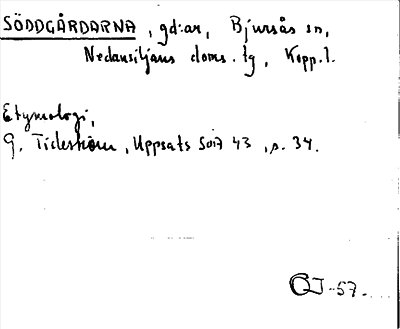 SÖDDGÅRDARNA, gd:ar, Bjursås sn,
Nedansiljans doms. tg, Kopp. l.
Etymologi,
G. Tideström, Uppsats 43, s. 34.
-57.